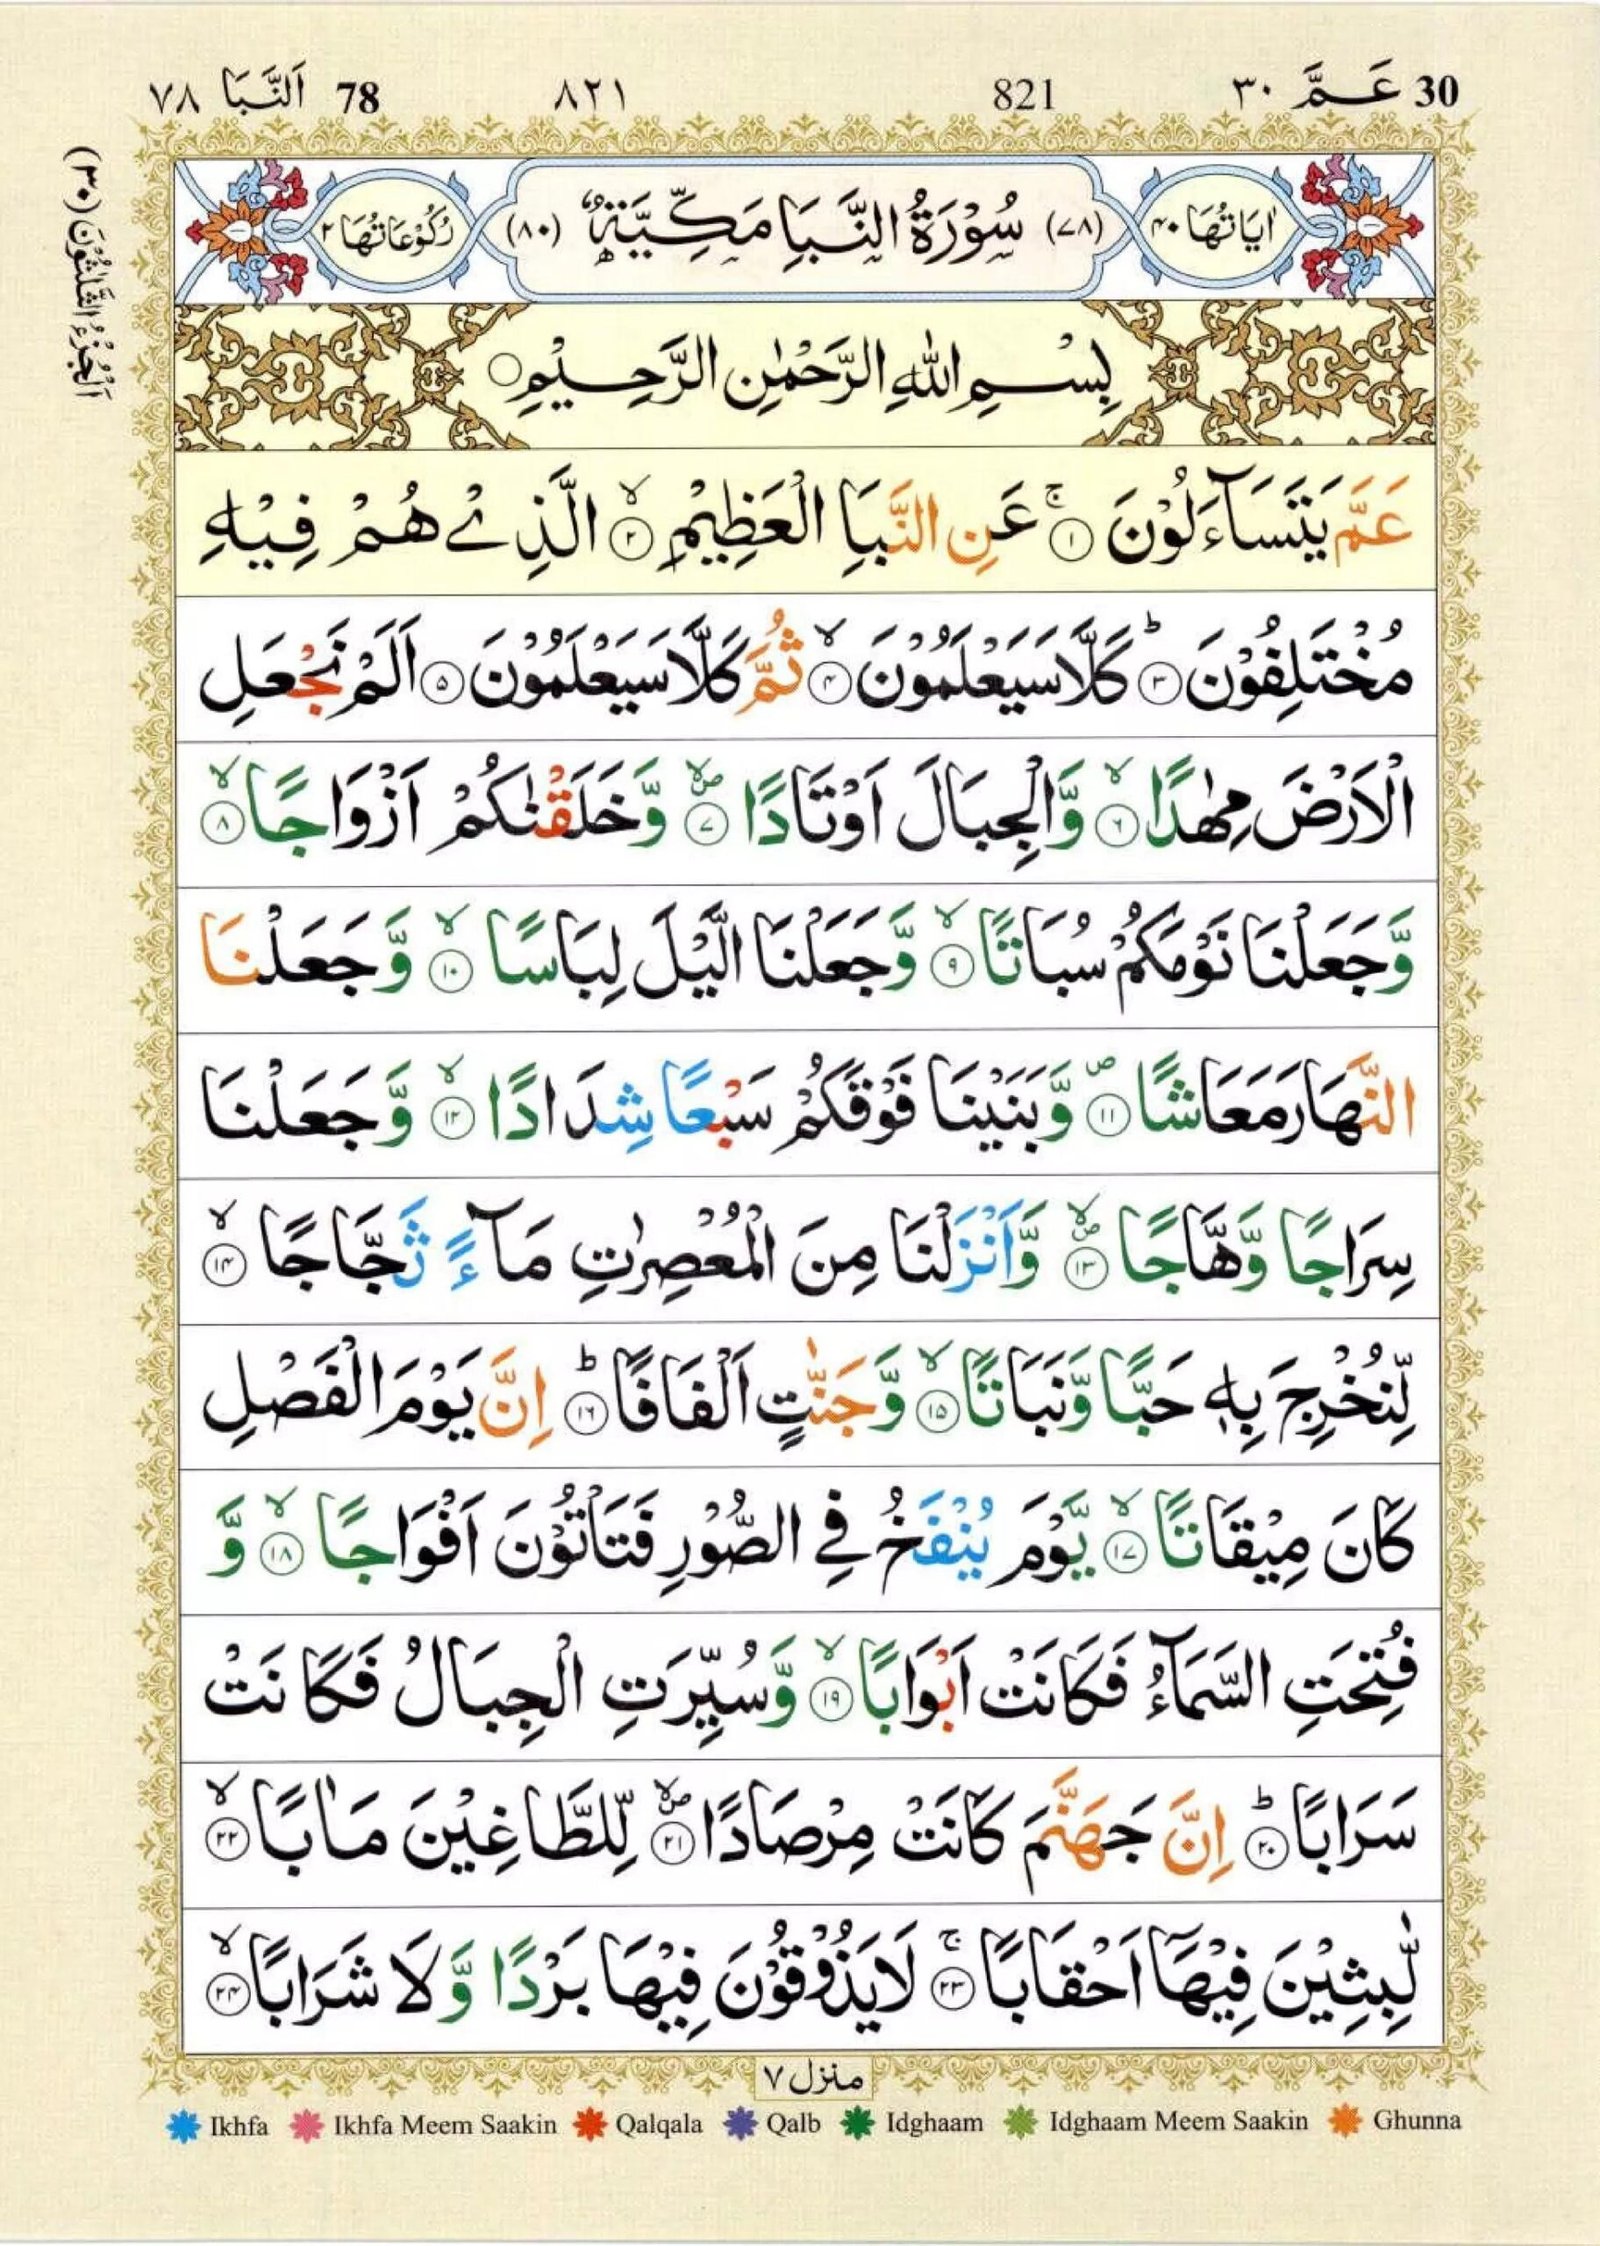 30 عَمَّ ٣٠ 821 ٨٢١ 78 اَلنَّبَا ٧٨
اَلْجُزْءُ الثَّلٰثُوْنَ (٣٠)
اٰيَاتُهَا ٤٠ (٧٨) سُوْرَةُ النَّبَاِ مَكِّيَّةٌ (٨٠) رُكُوْعَاتُهَا ٢
بِسْمِ اللّٰهِ الرَّحْمٰنِ الرَّحِيْمِ
عَمَّ يَتَسَآءَلُوْنَ ۚ‏ ١ عَنِ النَّبَاِ الْعَظِيْمِ ۙ‏ ٢ الَّذِىْ هُمْ فِيْهِ
مُخْتَلِفُوْنَ ؕ‏ ٣ كَلَّا سَيَعْلَمُوْنَ ۙ‏ ٤ ثُمَّ كَلَّا سَيَعْلَمُوْنَ ٥ اَلَمْ نَجْعَلِ
الْاَرْضَ مِهٰدًا ۙ‏ ٦ وَّالْجِبَالَ اَوْتَادًا ۪ۙ‏ ٧ وَّخَلَقْنٰكُمْ اَزْوَاجًا ۙ‏ ٨
وَّجَعَلْنَا نَوْمَكُمْ سُبَاتًا ۙ‏ ٩ وَّجَعَلْنَا الَّيْلَ لِبَاسًا ۙ‏ ١٠ وَّجَعَلْنَا
النَّهَارَ مَعَاشًا ۪‏ ١١ وَّبَنَيْنَا فَوْقَكُمْ سَبْعًا شِدَادًا ۙ‏ ١٢ وَّجَعَلْنَا
سِرَاجًا وَّهَّاجًا ۪ۙ‏ ١٣ وَّاَنْزَلْنَا مِنَ الْمُعْصِرٰتِ مَآءً ثَجَّاجًا ۙ‏ ١٤
لِّنُخْرِجَ بِهٖ حَبًّا وَّنَبَاتًا ۙ‏ ١٥ وَّجَنّٰتٍ اَلْفَافًا ؕ‏ ١٦ اِنَّ يَوْمَ الْفَصْلِ
كَانَ مِيْقَاتًا ۙ‏ ١٧ يَّوْمَ يُنْفَخُ فِى الصُّوْرِ فَتَاْتُوْنَ اَفْوَاجًا ۙ‏ ١٨ وَّ
فُتِحَتِ السَّمَآءُ فَكَانَتْ اَبْوَابًا ۙ‏ ١٩ وَّسُيِّرَتِ الْجِبَالُ فَكَانَتْ
سَرَابًا ؕ‏ ٢٠ اِنَّ جَهَنَّمَ كَانَتْ مِرْصَادًا ۪ۙ‏ ٢١ لِّلطَّاغِيْنَ مَاٰبًا ۙ‏ ٢٢
لّٰبِثِيْنَ فِيْهَآ اَحْقَابًا ۚ‏ ٢٣ لَا يَذُوْقُوْنَ فِيْهَا بَرْدًا وَّلَا شَرَابًا ۙ‏ ٢٤
منزل ٧
Ikhfa Ikhfa Meem Saakin Qalqala Qalb Idghaam Idghaam Meem Saakin Ghunna